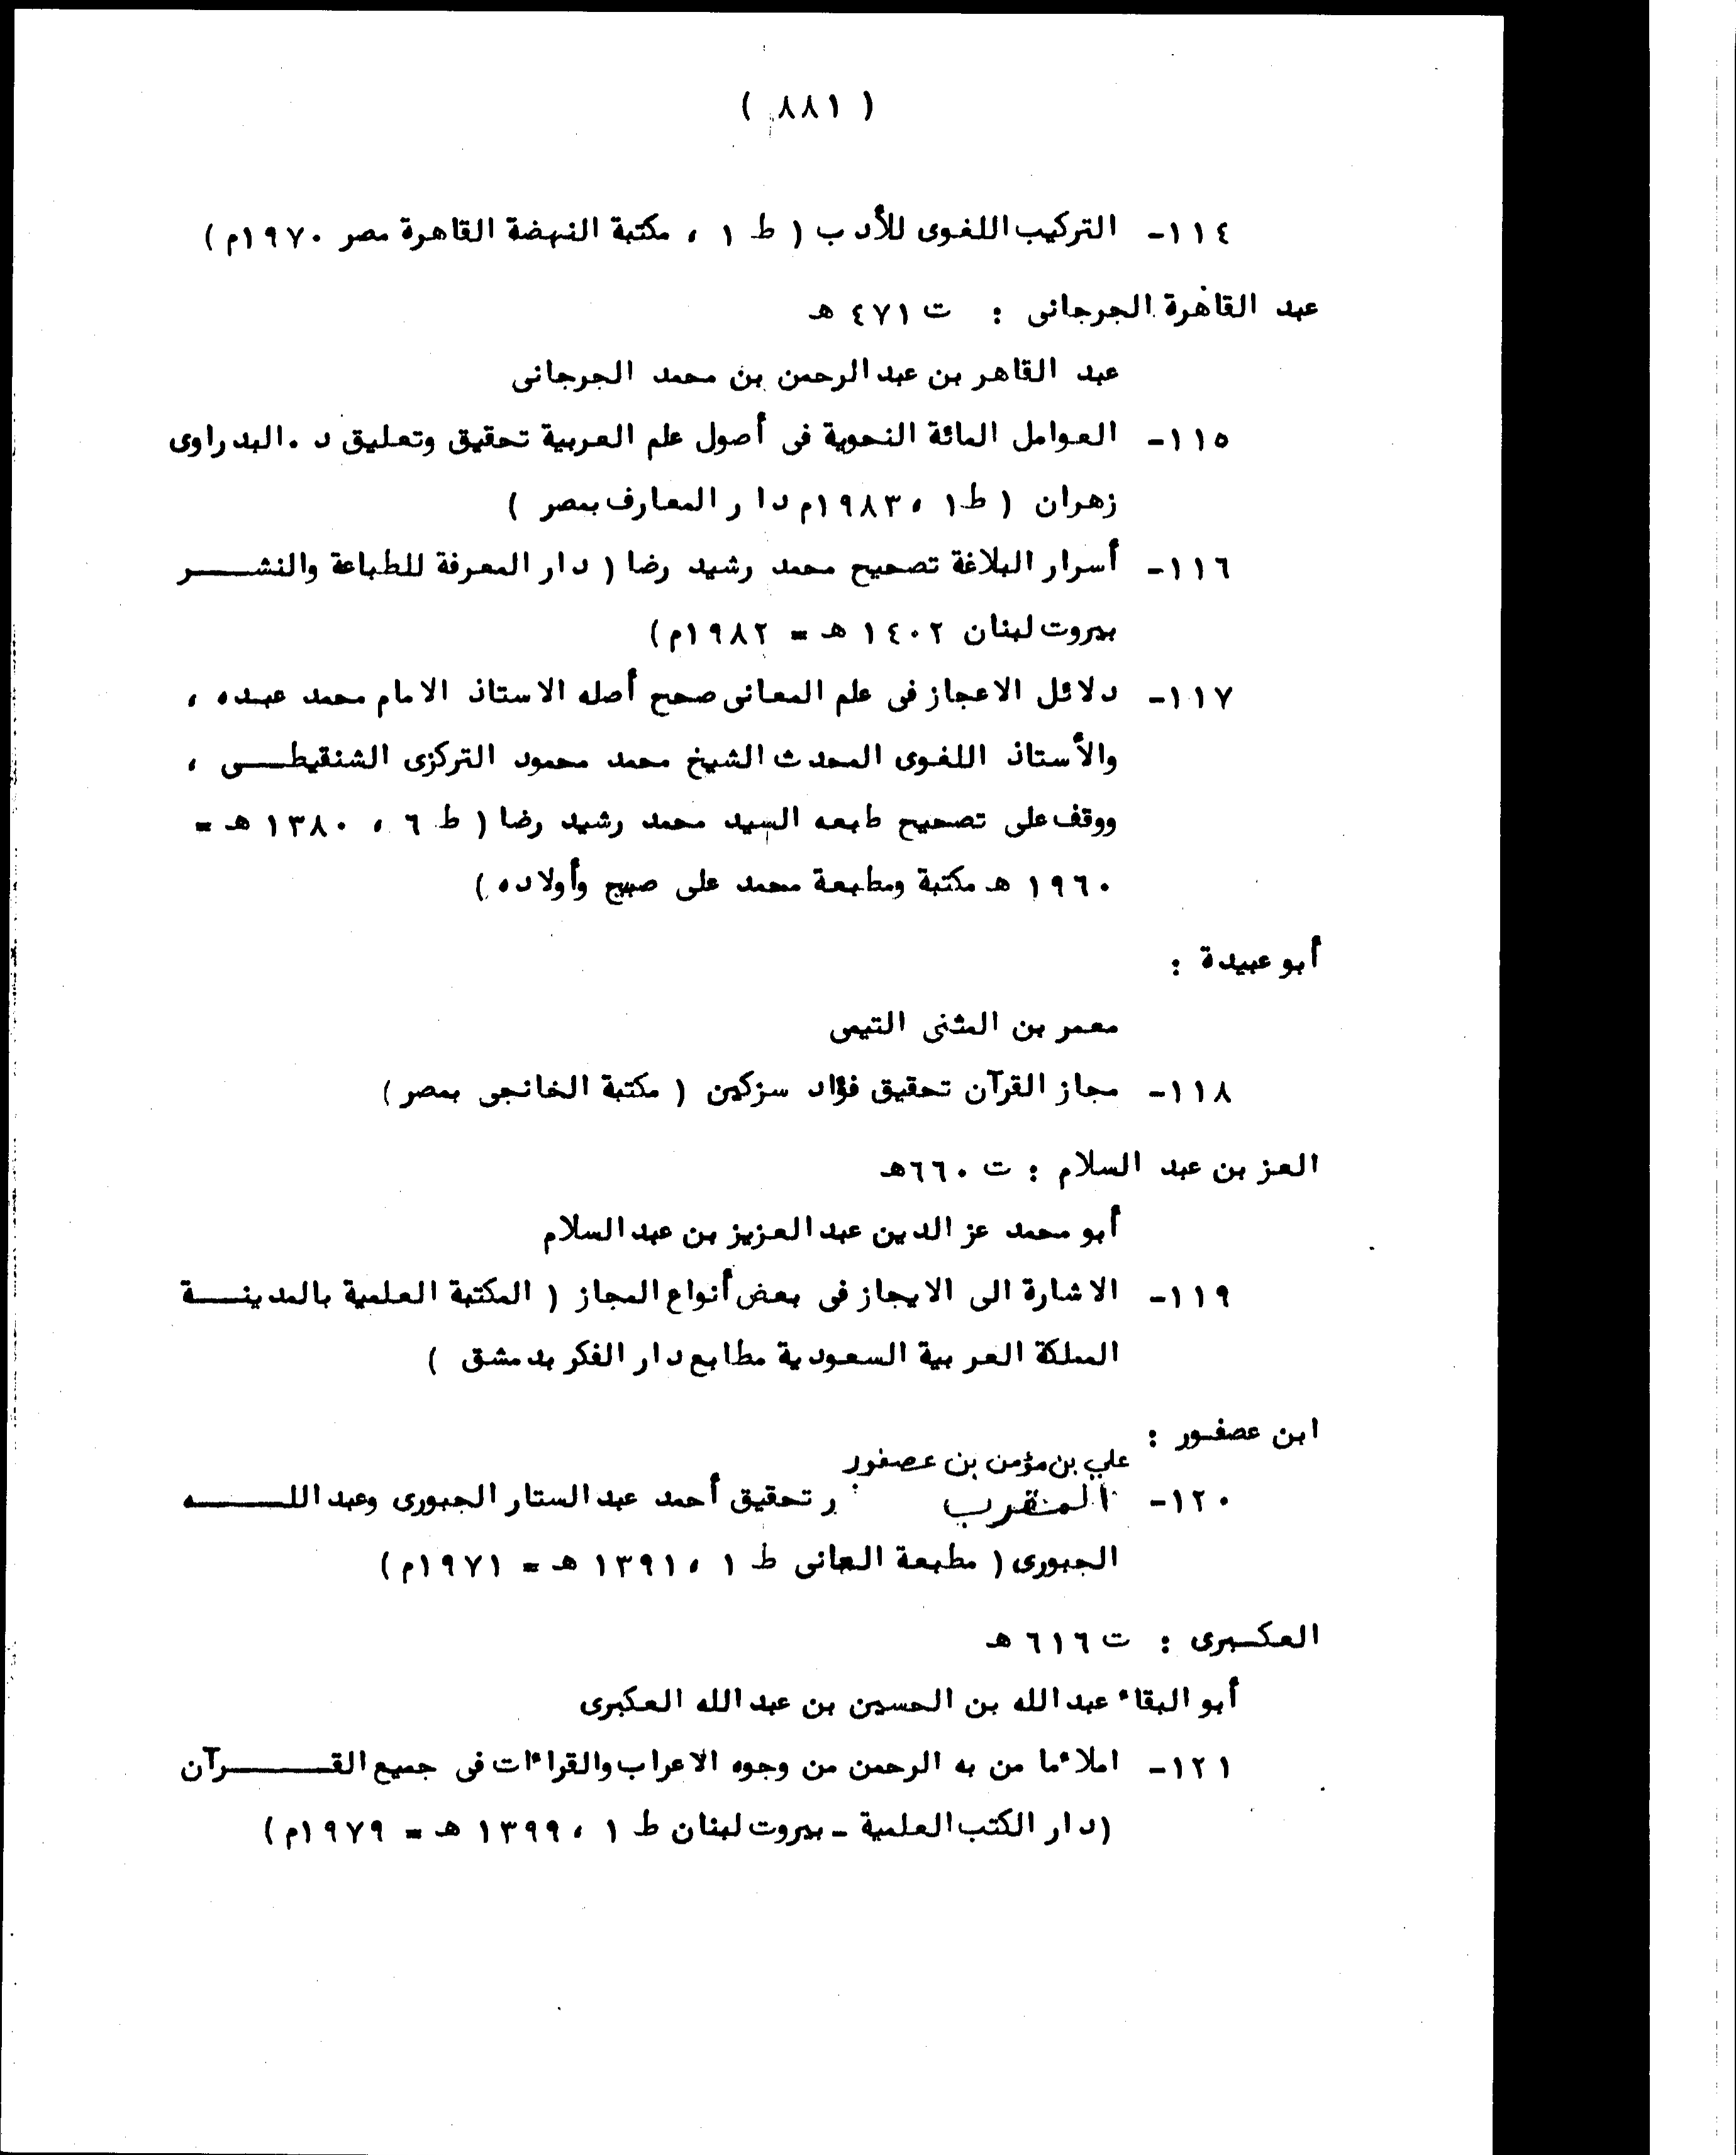 ( ٨٨١ )
١١٤- التركيب اللغوى للأدب ( ط ١ ، مكتبة النهضة القاهرة مصر ١٩٧٠م )
عبد القاهرة الجرجانى : ت ٤٧١ هـ
عبد القاهر بن عبد الرحمن بن محمد الجرجانى
١١٥- العوامل المائة النحوية فى أصول علم العربية تحقيق وتعليق د . البدراوى
زهران ( ط١ ، ١٩٨٣م دار المعارف بمصر )
١١٦- أسرار البلاغة تصحيح محمد رشيد رضا ( دار المعرفة للطباعة والنشـــر
بيروت لبنان ١٤٠٢ هـ = ١٩٨٢م )
١١٧- دلائل الاعجاز فى علم المعانى صحح أصله الاستاذ الامام محمد عبده ،
والأستاذ اللغوى المحدث الشيخ محمد محمود التركزى الشنقيطـــى ،
ووقف على تصحيح طبعه السيد محمد رشيد رضا ( ط ٦ ، ١٣٨٠ هـ =
١٩٦٠ هـ مكتبة ومطبعة محمد على صبيح وأولاده )
أبو عبيدة :
معمر بن المثنى التيمى
١١٨- مجاز القرآن تحقيق فؤاد سزكين ( مكتبة الخانجى بمصر )
العز بن عبد السلام : ت ٦٦٠هـ
أبو محمد عز الدين عبد العزيز بن عبد السلام
١١٩- الاشارة الى الايجاز فى بعض أنواع المجاز ( المكتبة العلمية بالمدينـــة
المملكة العربية السعودية مطابع دار الفكر بدمشق )
ابن عصفـور :
علي بن مؤمن بن عصفور
١٢٠- المقرب ر تحقيق أحمد عبد الستار الجبورى وعبد اللـــه
الجبورى ( مطبعة العانى ط ١ ، ١٣٩١ هـ = ١٩٧١م )
العكـبرى : ت ٦١٦ هـ
أبو البقاء عبد الله بن الحسين بن عبد الله العكبرى
١٢١- املاء ما من به الرحمن من وجوه الاعراب والقراءات فى جميع القـــرآن
( دار الكتب العلمية - بيروت لبنان ط ١ ، ١٣٩٩ هـ = ١٩٧٩م )